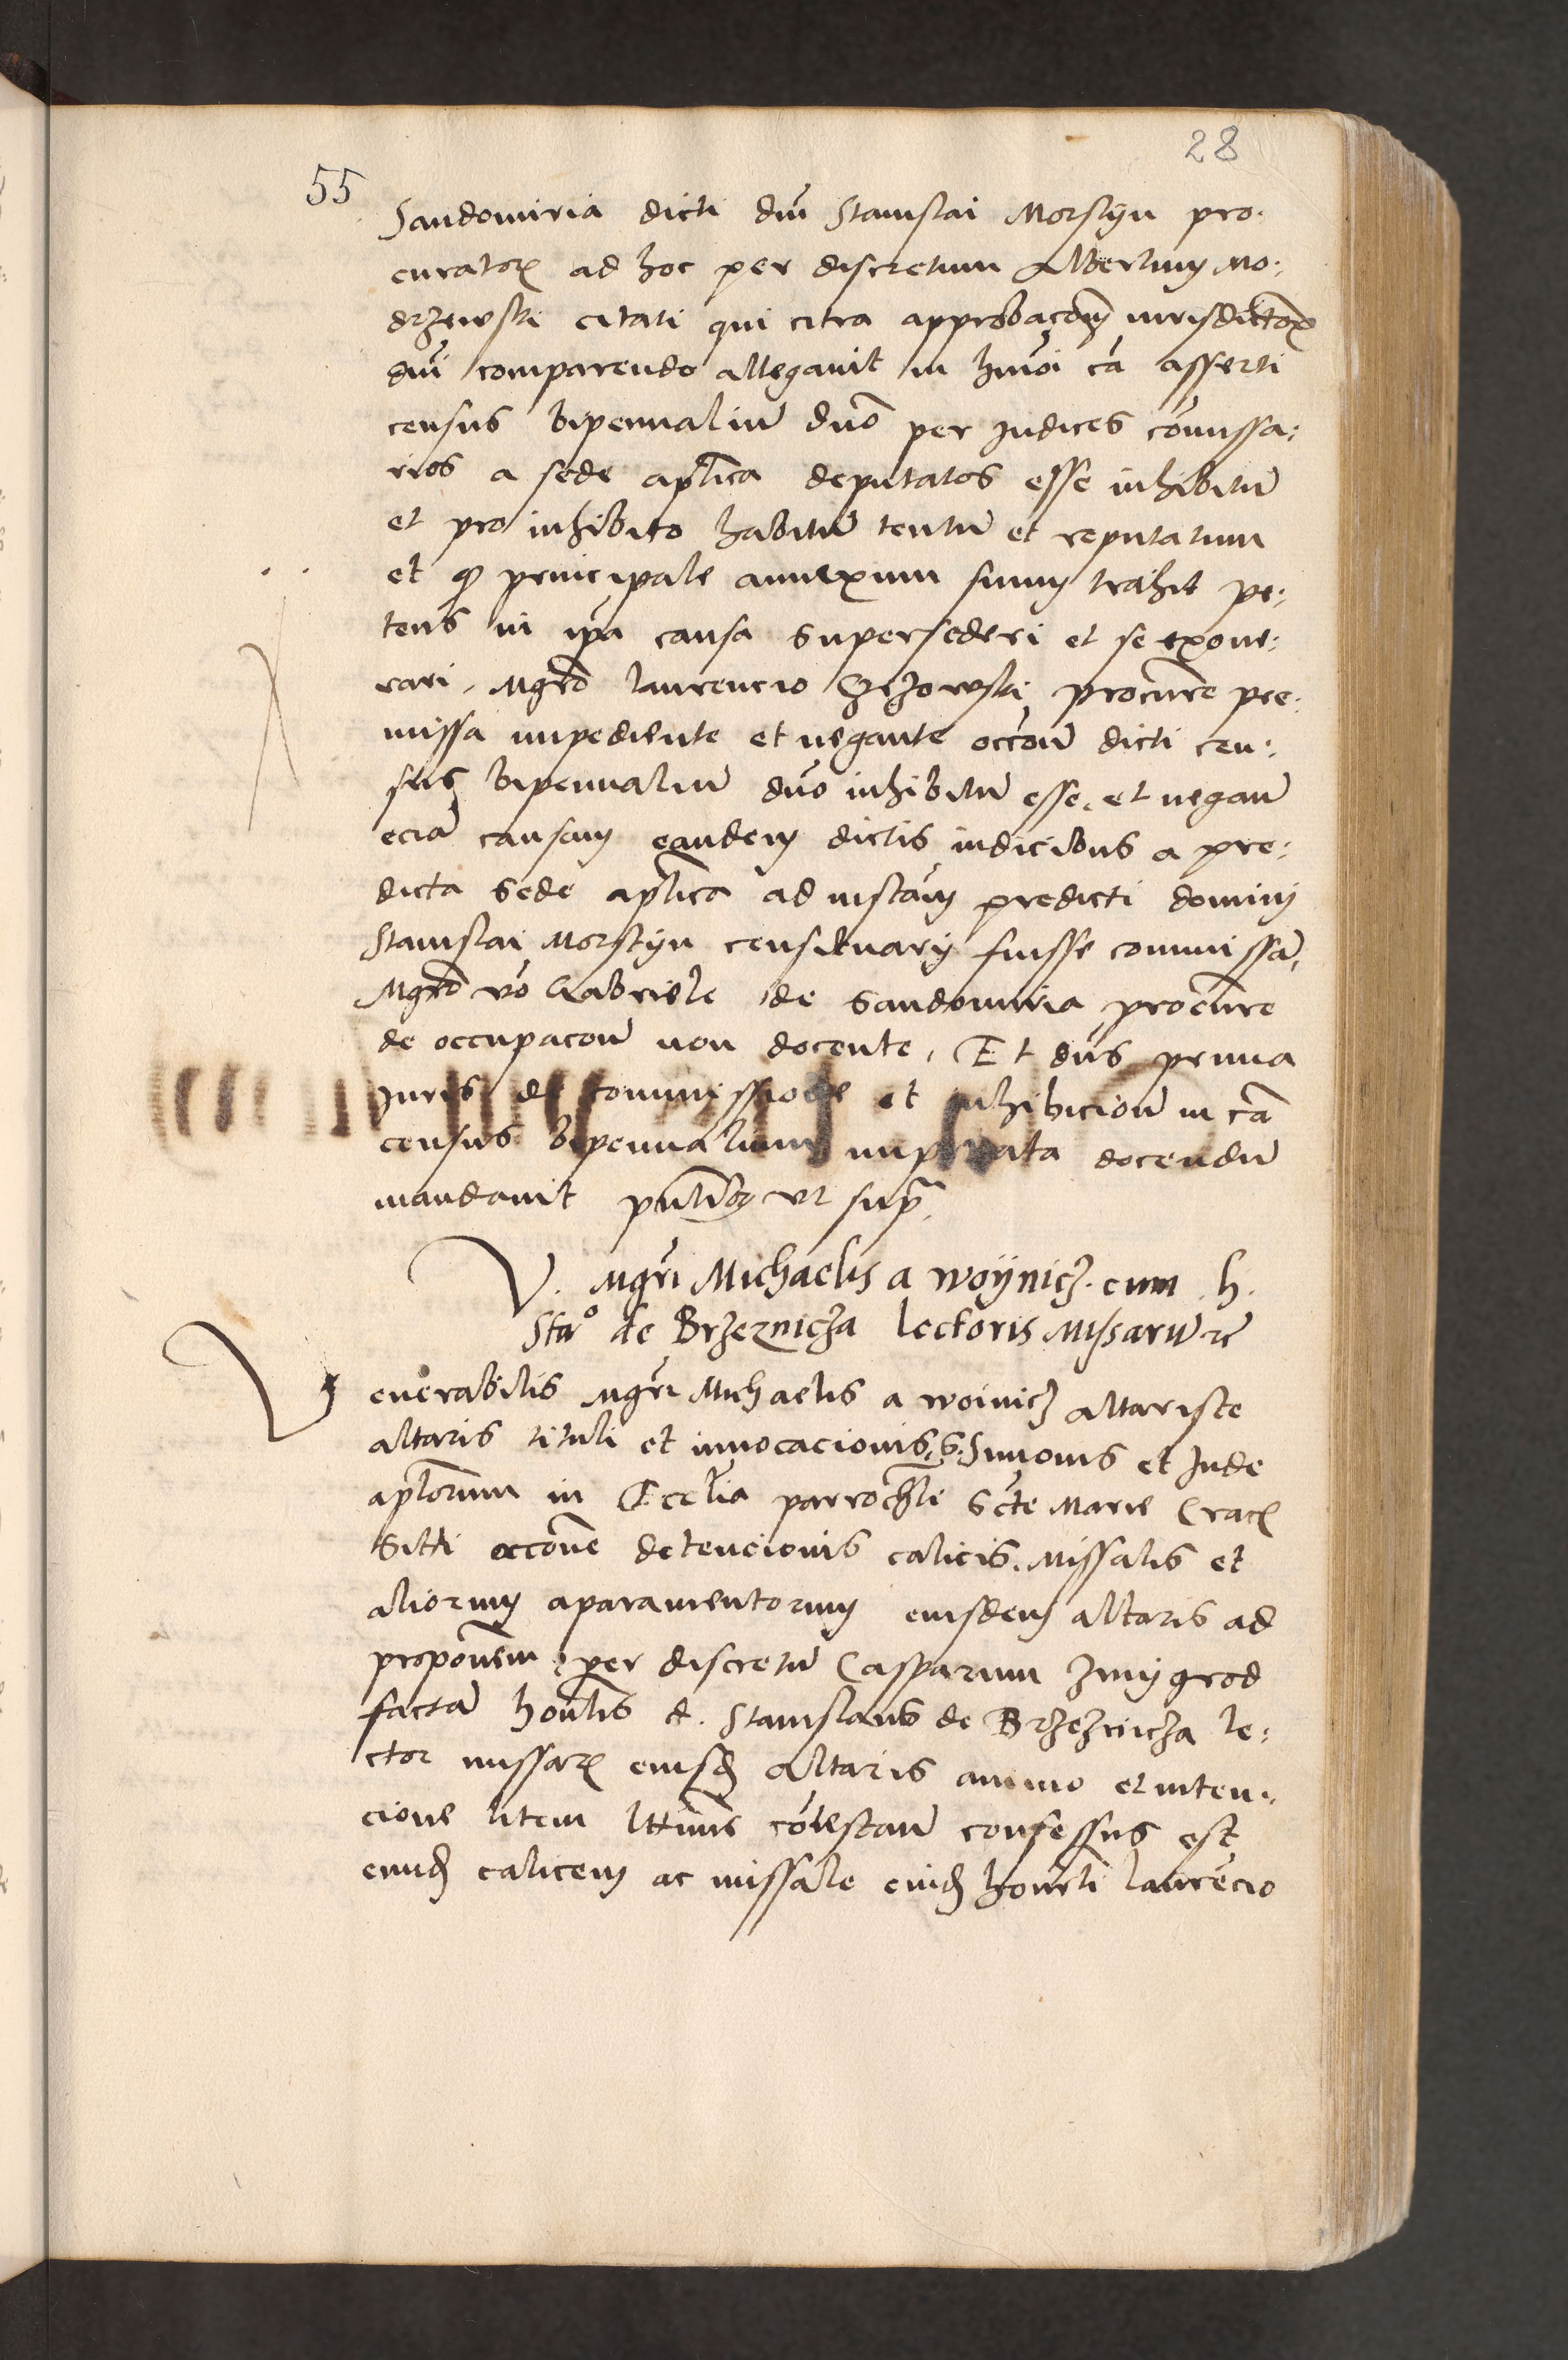 28
55
Sandomiria dicti dni Stanislai Morstijn pro:
curator ad hoc per discretum Albertum Mo:
drzewski citati qui citra approbacōem iurisdictōis
dni comparendo allegavit in hmōi ca asserti
census bipennalium duo per Judices cōmissa:
rios a sede aplica deputatos esse inhibitū
et pro inhibito habitū tentū et reputatum
et q principale annexum suum trahit pe:
tens in ipa causa supersederi et se exone:
rari, Mgro laurencio procure pre:
missa impediente et negante occōne dicti cen:
sus bipennaliū duo inhibitū esse. et negan
eciā causam eandem dictis iudicibus a pre:
dicta sede aplica ad instam predicti dominij
Stanislai Morstijn censituarij fuisse commissā,
Mgro vo Gabriele de Sandomiria procure
de occupacone non docente, Et dns prima
Juris de commissione et inhibicione in ca
census bipennalium docendū
mandavit pntibus vt supra
V. Mgri Michaelis a woijnicz. cum h.
Stā° de Brzeznicza lectoris Missarū re
Venerabilis Mgri Michaelis a woinicz altariste
altaris tituli et innocacionis. S. Simonis et Jude
aplorum in Eccelia parrochli Scte Marie Crac
Sitti occōne detencionis calicis. Missalis et
aliorum aparamentorum eiusdem altaris ad
proponem per discretū Casparum Zmijgrod
factā honlis d. Stanislaus de Brzeznicza le:
ctor missar eiusd altaris animo et inten:
cione litem lttime cōtestan confessus est
eund calicem ac missale eiusd honrli laurēcio